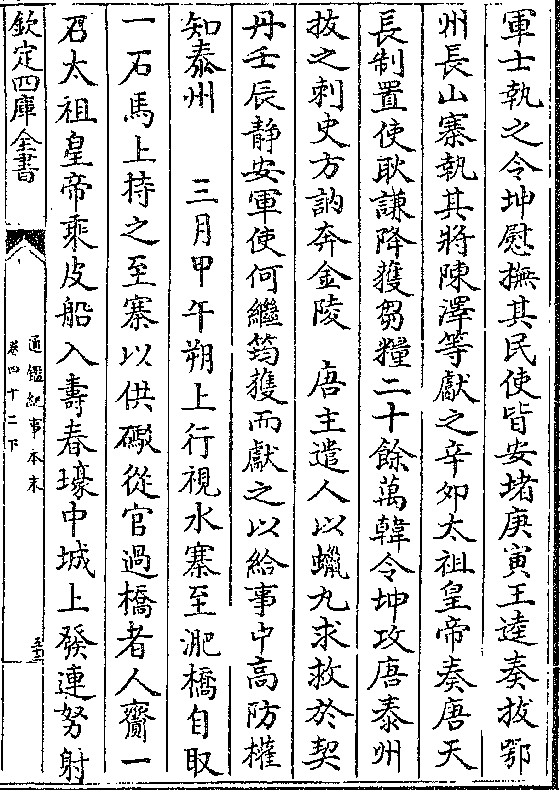 軍士執之令坤慰撫其民使皆安堵庚寅王逵奏拔鄂
州長山寨執其將陳澤等獻之辛卯太祖皇帝奏唐天
長制置使耿謙降獲芻糧二十餘萬韓令坤攻唐泰州
拔之刺史方訥奔金陵　唐主遣人以蠟丸求救於契
丹壬辰靜安軍使何繼筠獲而獻之以給事中高防權
知泰州　三月甲午朔上行視水寨至淝橋自取
一石馬上持之至寨以供礮從官過橋者人齎一
石太祖皇帝乘皮船入壽春壕中城上發連弩射
欽定四庫全書
通鑑紀事本末
卷四十二下